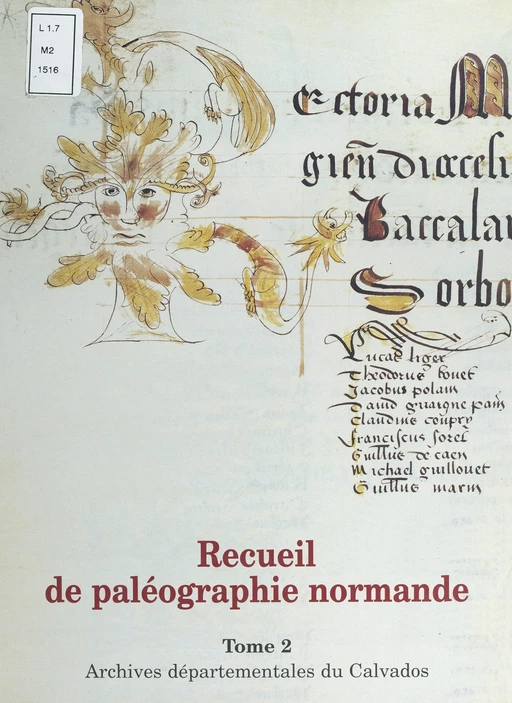 L 1.7
M2
1516
Rectoria M
gieñ diœcesi
Baccalau
Sorbo
Lucas liger
Theodorus bouet
Jacobus polain
Dauid guargne pain
Claudius coupry
Franciscus sorel
Guillus de caen
Michael guillouet
Guillus marin
Recueil
de paléographie normande
Tome 2
Archives départementales du Calvados